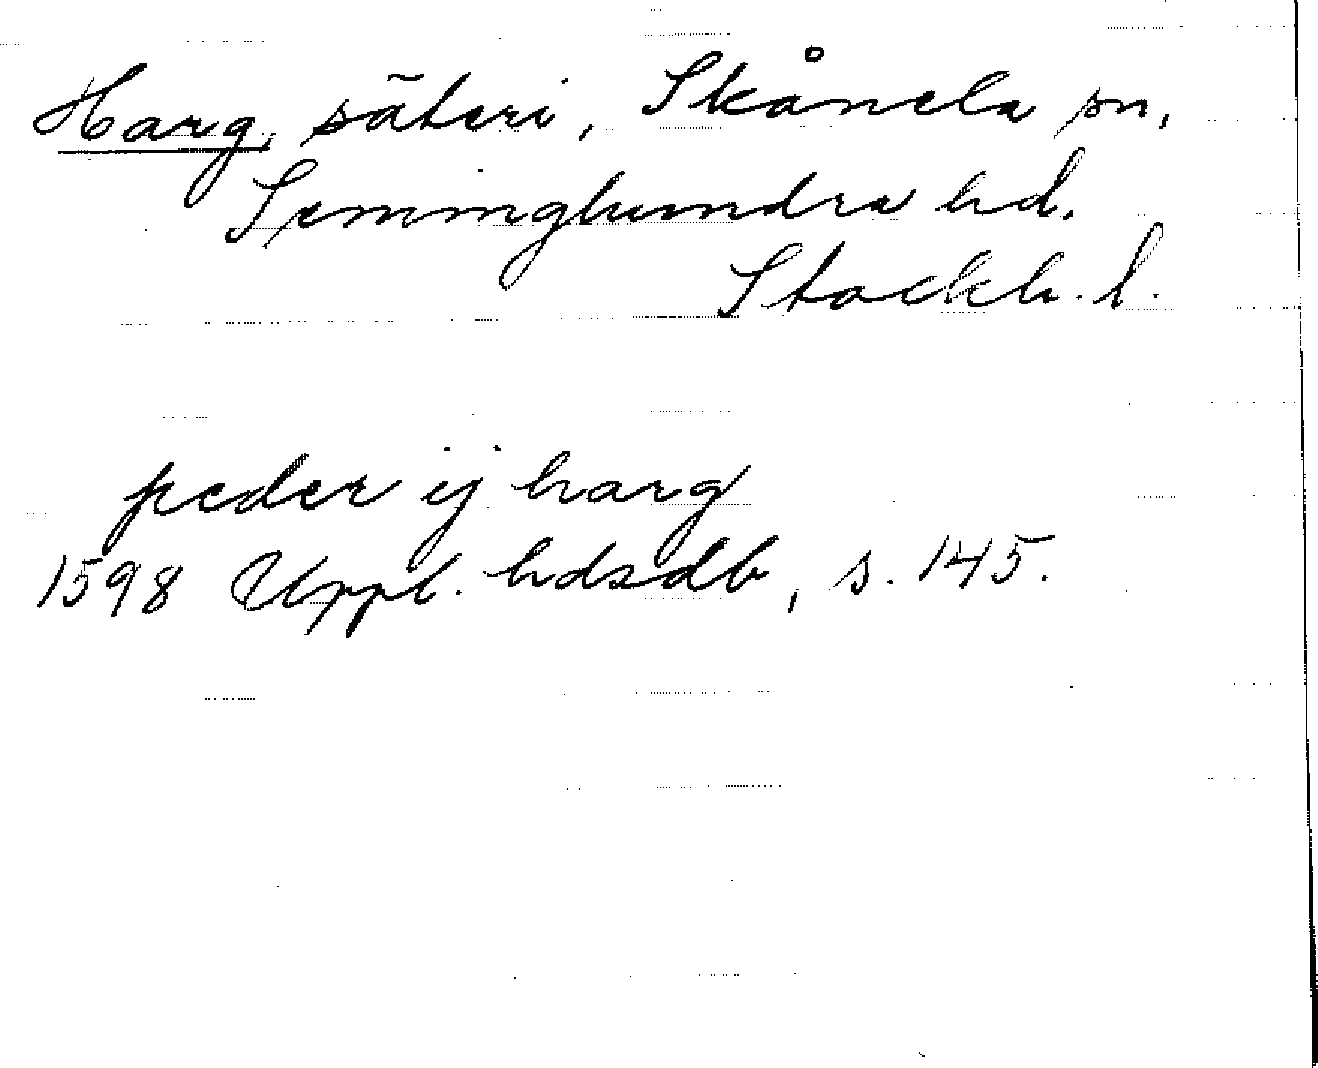 Harg, säteri, Skånela sn,
Seminghundra hd.
Stockh. l.
peder ij harg
1598 Uppl. hdsdb, s. 145.